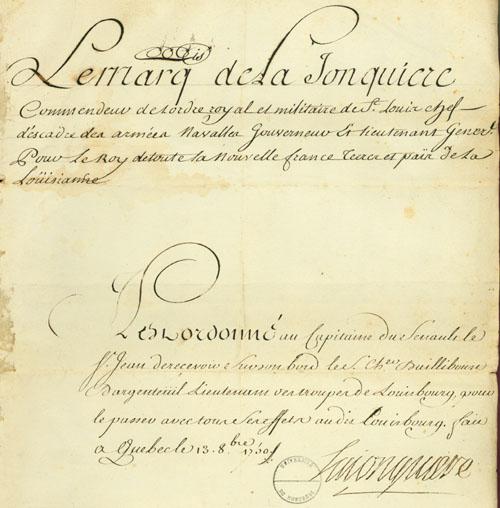 Le marq^is de La Jonquiere
Commendeur de l'ordre royal et militaire de S^t. Louis chef
descadre des armées Navalles Gouverneur Et lieutenant Gener^l.
Pour Le Roy de toute la Nouvelle france Terres et païs de La
Loüisianne
Il Est ordonné au Capitaine du Senault le
S^t. Jean de recevoir sur son bord le S. Ch^er Baillibouse
Dargenteüil Lieutenant des troupes de Louisbourg, pour
le passer avec tous ses effets audit Louisbourg. fait
a Quebec le 13. 8.^bre 1750
Lajonquiere
UNIVERSITÉ
DE MONTRÉAL